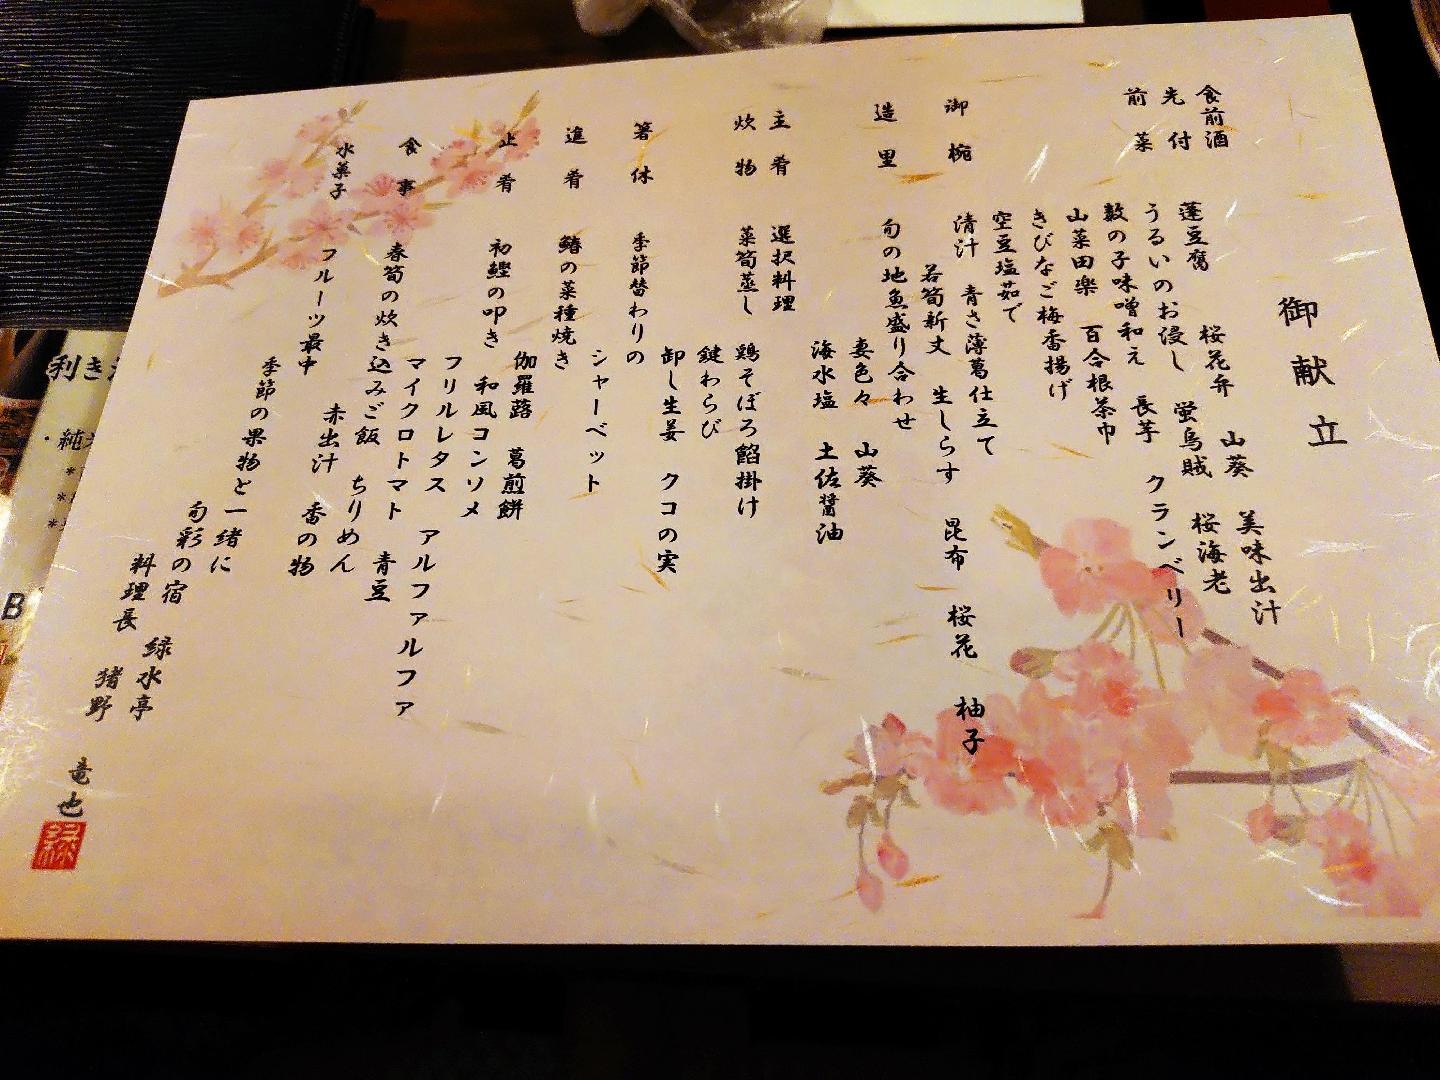 御献立
食前酒
先付 蓬豆腐 桜花弁 山葵 美味出汁
前菜 うるいのお浸し 蛍烏賊 桜海老
数の子味噌和え 長芋 クランベリー
山菜田楽 百合根茶巾
きびなご梅香揚げ
空豆塩茹で
御椀 清汁 青さ薄葛仕立て
若筍新丈 生しらす 昆布 桜花 柚子
造里 旬の地魚盛り合わせ
妻色々 山葵
海水塩 土佐醤油
主肴 選択料理
炊物 菜筍蒸し 鶏そぼろ餡掛け
鍵わらび
卸し生姜 クコの実
箸休 季節替わりの
シャーベット
進肴 鰆の菜種焼き
伽羅蕗 葛煎餅
止肴 初鰹の叩き 和風コンソメ
フリルレタス アルファルファ
マイクロトマト 青豆
食事 春筍の炊き込みご飯 ちりめん
赤出汁 香の物
水菓子 フルーツ最中
季節の果物と一緒に
旬彩の宿 緑水亭
料理長 猪野 竜也
利き
・純米
B